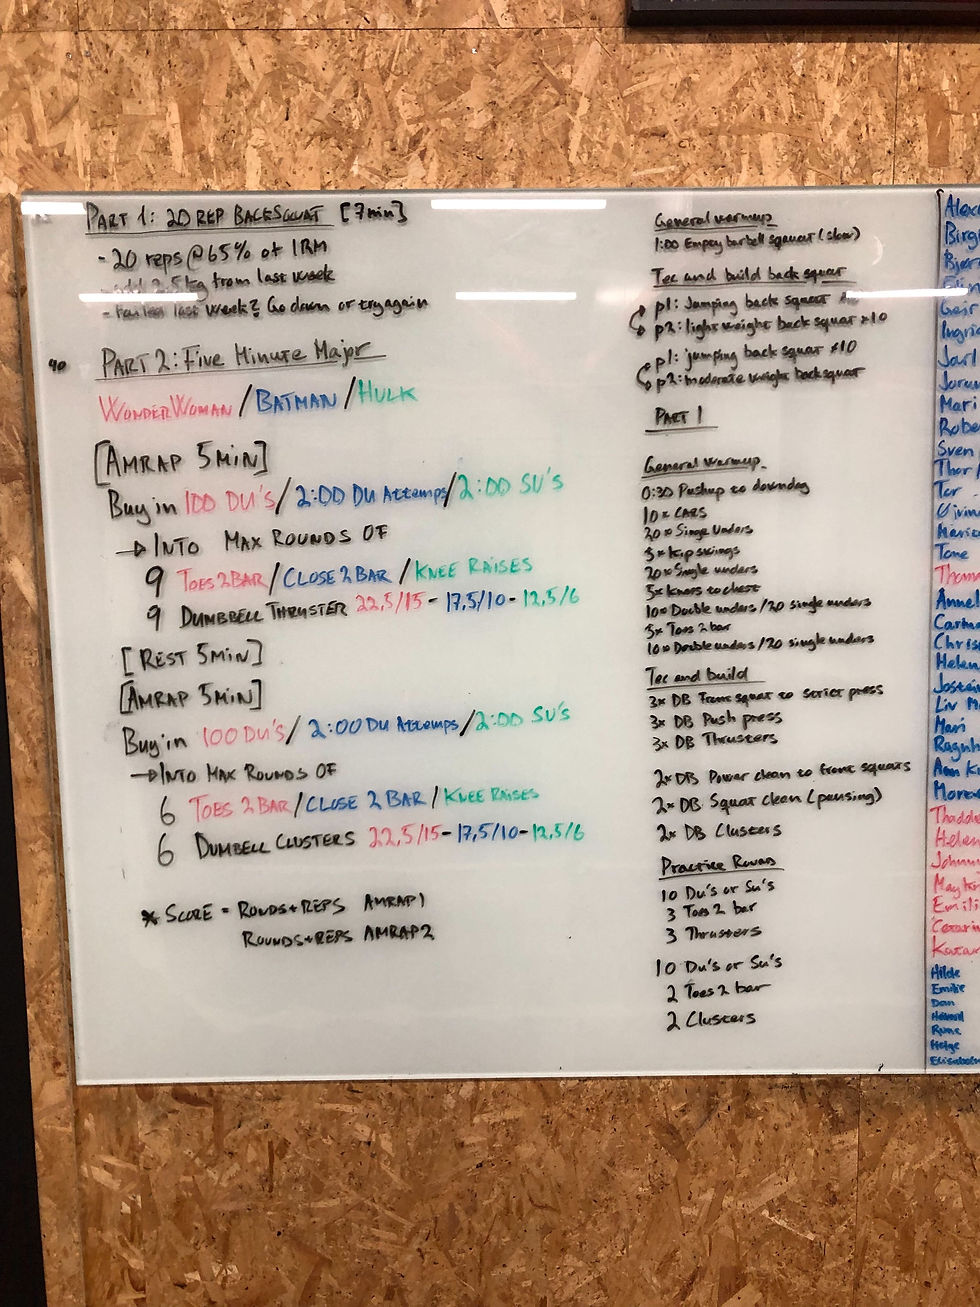 PART 1: 20 REP BACKSQUAT [7min]
- 20 reps @ 65% of 1RM
- add 2.5kg from last week
- Failed last week? Go down or try again
PART 2: Five Minute Major
WONDERWOMAN / BATMAN / HULK
[AMRAP 5MIN]
Buy in 100 DU'S / 2:00 DU Attemps / 2:00 SU'S
→ INTO MAX ROUNDS OF
9 TOES2BAR / CLOSE 2 BAR / KNEE RAISES
9 DUMBBELL THRUSTER 22,5/15 - 17,5/10 - 12,5/6
[REST 5MIN]
[AMRAP 5MIN]
Buy in 100 DU'S / 2:00 DU Attemps / 2:00 SU'S
→ INTO MAX ROUNDS OF
6 TOES 2 BAR / CLOSE 2 BAR / KNEE RAISES
6 DUMBELL CLUSTERS 22,5/15 - 17,5/10 - 12,5/6
* SCORE = ROUDS+REPS AMRAP1
ROUNDS+REPS AMRAP2
General warmup
1:00 Empty barbell squeuat (slow)
Tec and build back squat
p1: Jumping back squeat
p2: light weight back squat x10
p1: jumping back squat x10
p2: moderate weight back squat
PART 1
General warmup
0:30 Pushup to downdog
10x CARS
20x Single Unders
5x Kip swings
20x Single unders
5x Knees to chest
10x Double unders / 20 single unders
3x Toes 2 bar
10x Double unders / 20 single unders
Tec and build
3x DB Front squat to strict press
3x DB Push press
3x DB Thrusters
2x DB Power clean to front squats
2x DB Squat clean (pausing)
2x DB Clusters
Practice Rounds
10 Du's or Su's
3 Toes 2 bar
3 Thrusters
10 Du's or Su's
2 Toes 2 bar
2 Clusters
Geir
Ingri
Jarl
Mari
Robe
Sven
Thor
Tor
Tone
Annel
Chris
Helen
Jostein
Liv M
Mari
Ann K
Helen
Emili
Hilde
Emilie
Dan
Håvard
Rune
Helge